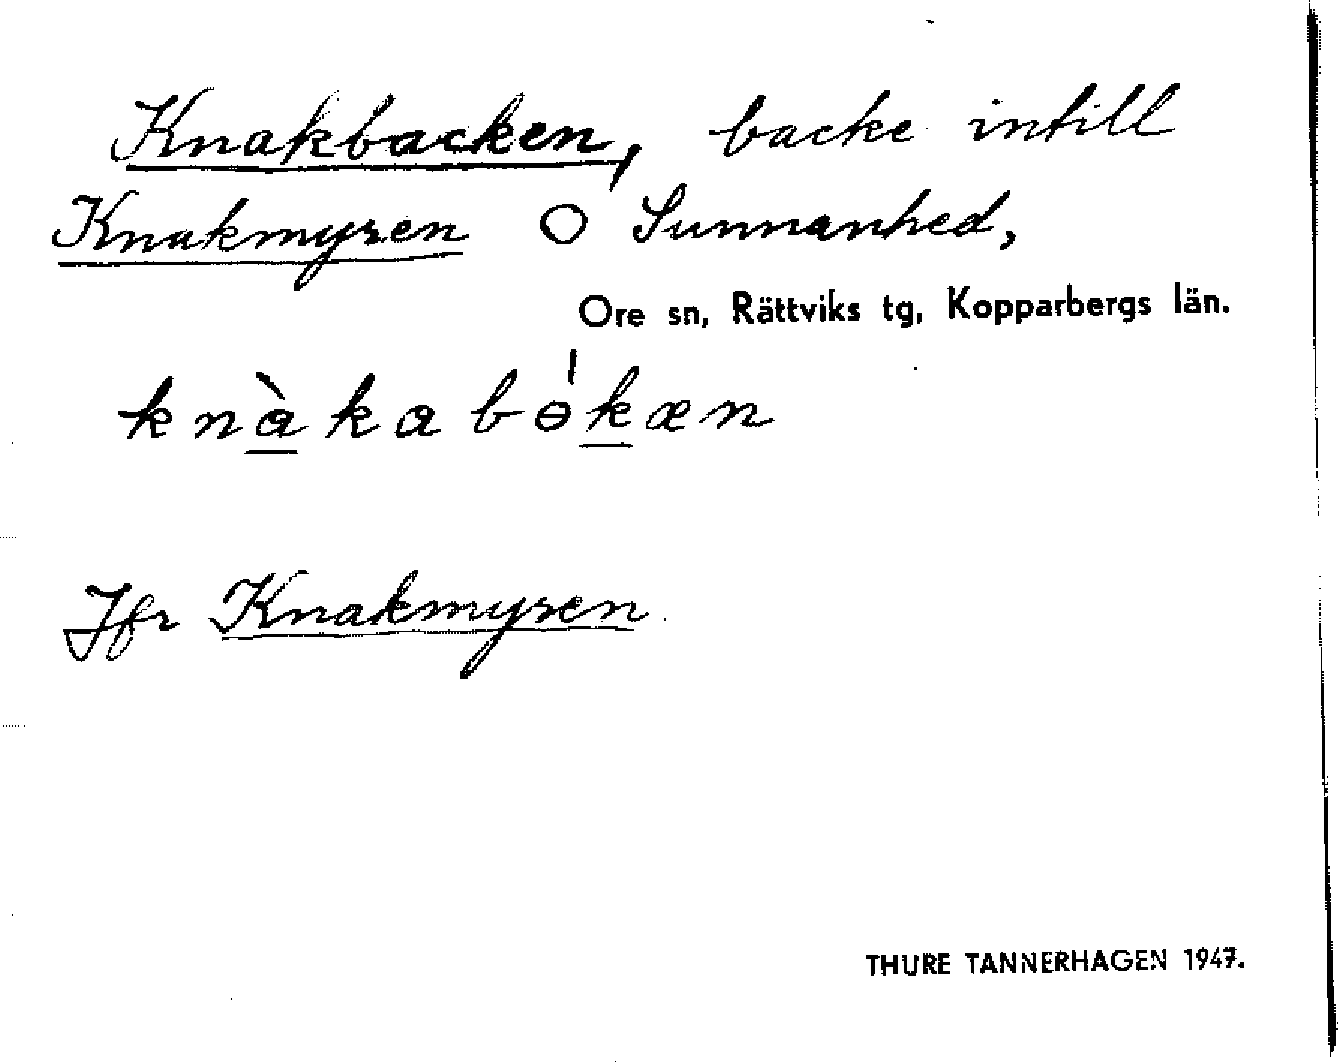 Knakbacken, backe intill
Knakmyren O Sunnanhed,
Ore sn, Rättviks tg, Kopparbergs län.
knàkabɵ́kæn
Jfr Knakmyren
THURE TANNERHAGEN 1947.